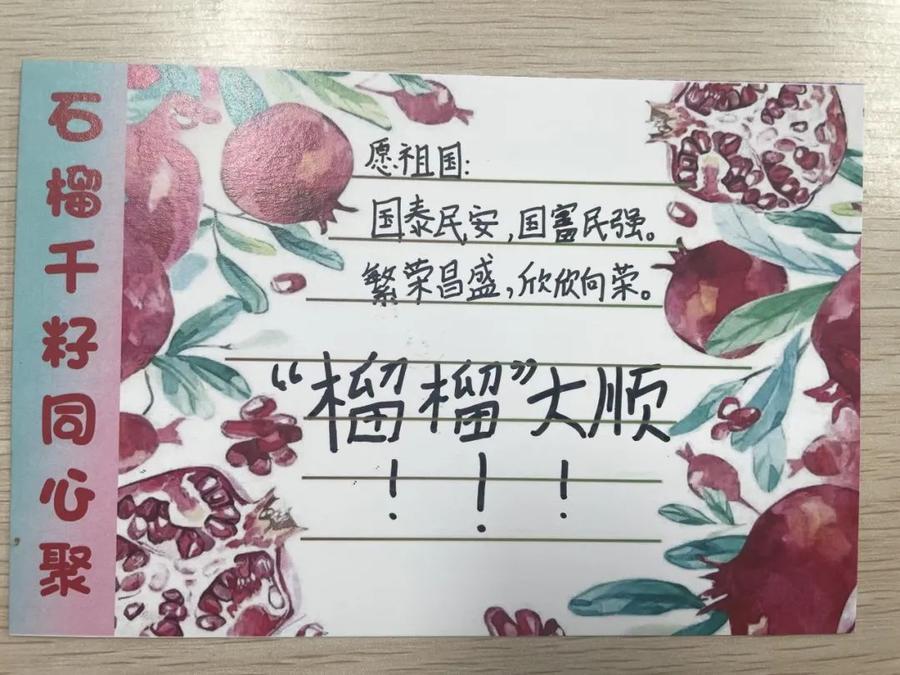 石榴千籽同心聚
愿祖国:
国泰民安,国富民强。
繁荣昌盛,欣欣向荣。
“榴榴”大顺
!!!